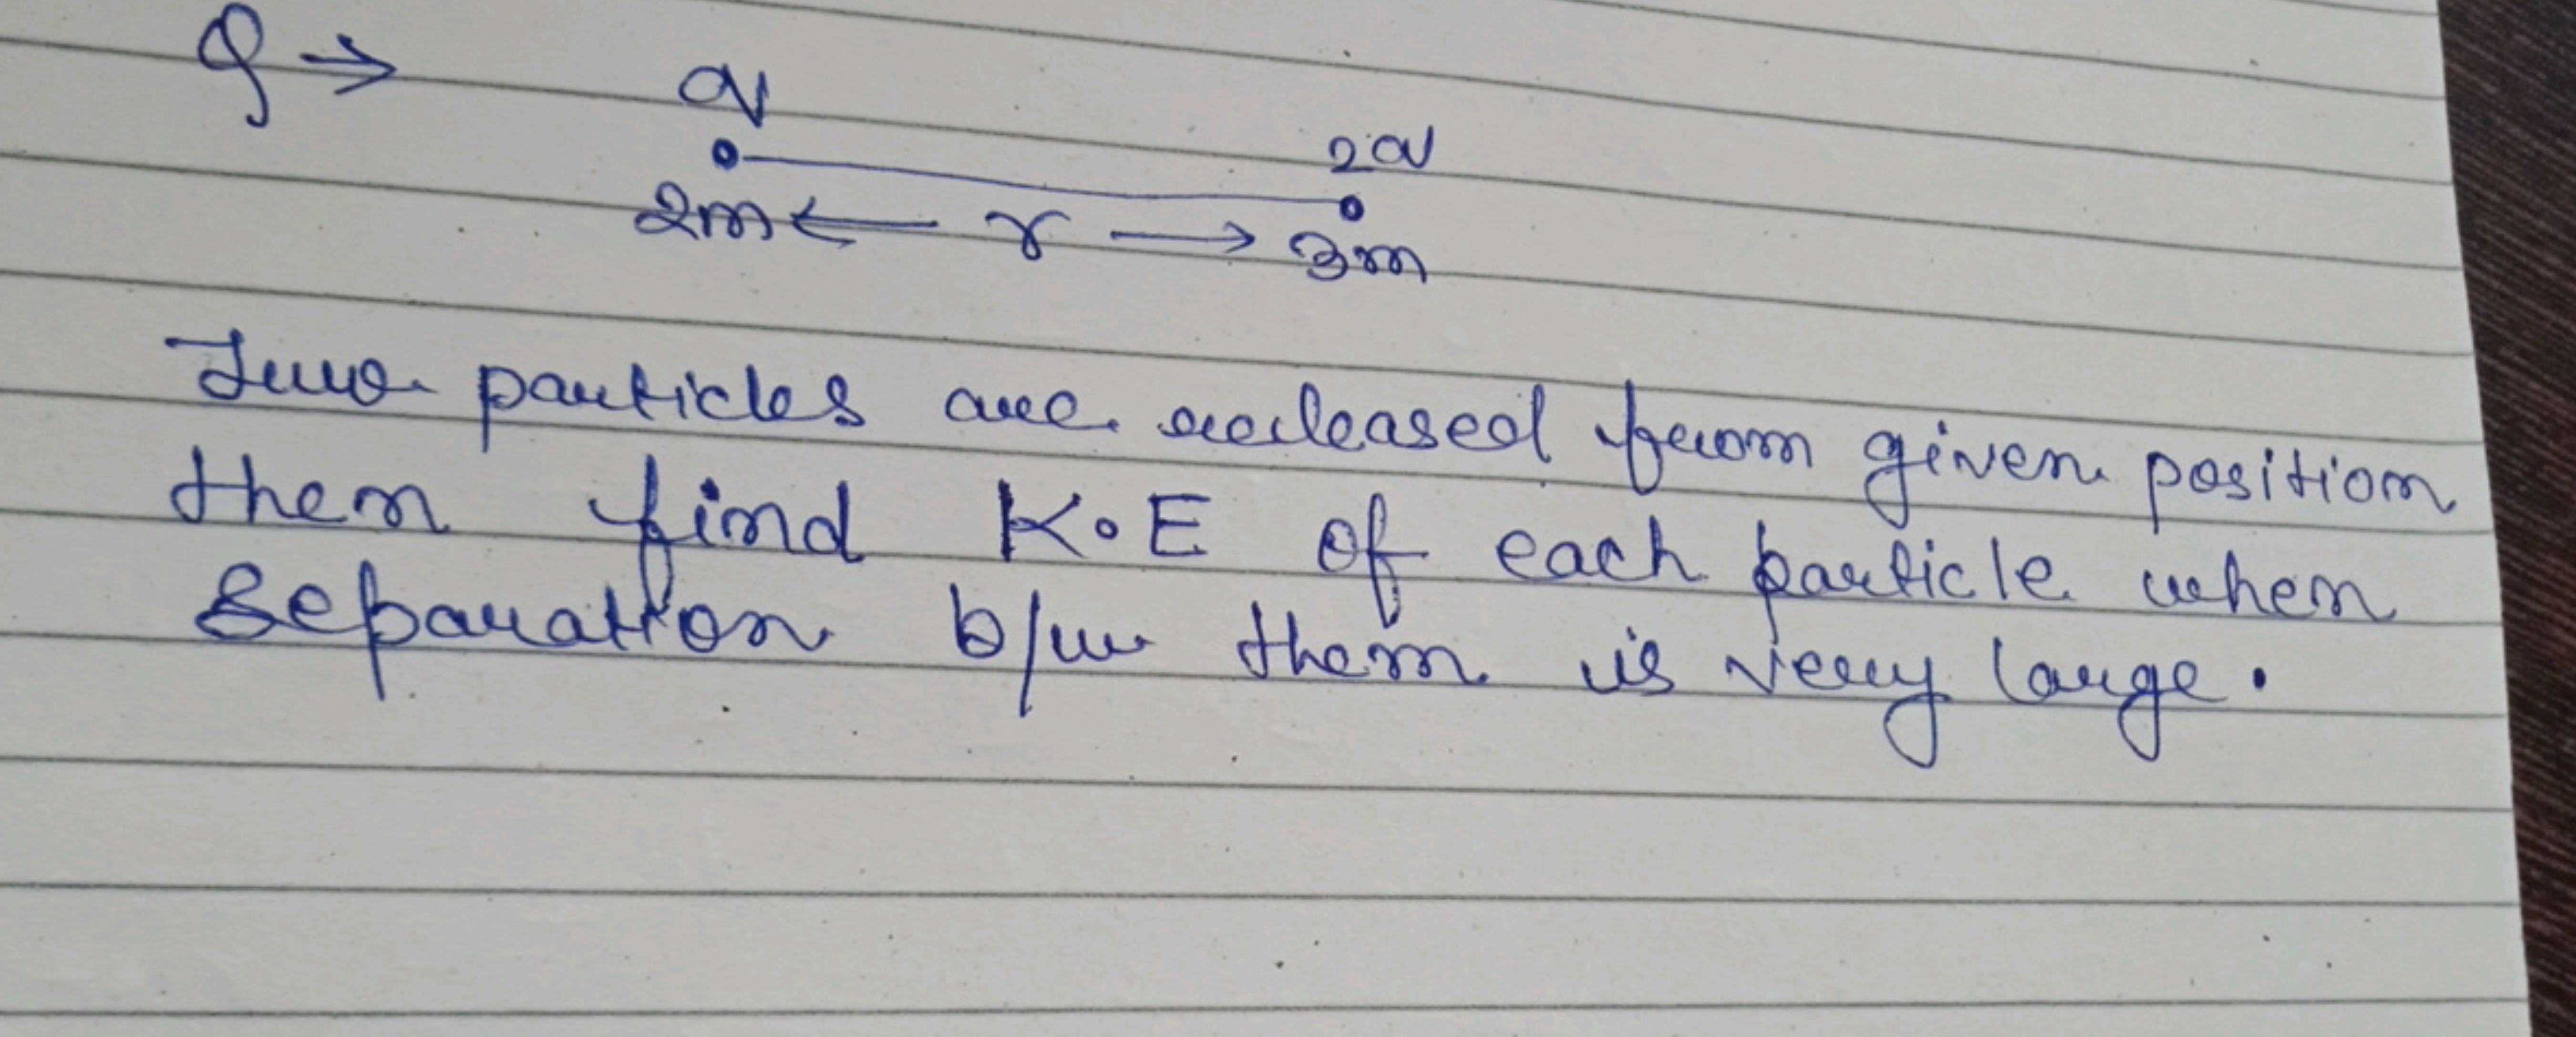 Q →
q 2q
2m ← r → 3m
Two particles are released from given position
then find K.E of each particle when
separation b/w them is very large.